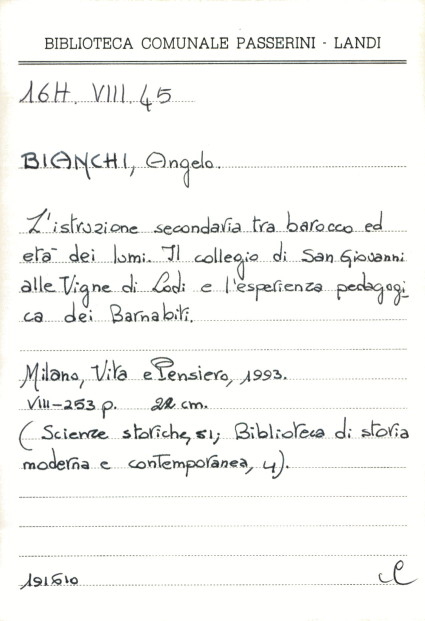 BIBLIOTECA COMUNALE PASSERINI - LANDI
16H. VIII. 45
BIANCHI, Angelo.
L'istruzione secondaria tra barocco ed
età dei lumi. Il collegio di San Giovanni
alle Vigne di Lodi e l'esperienza pedagogi-
ca dei Barnabiti.
Milano, Vita e Pensiero, 1993.
VIII-253 p. 22 cm.
(Scienze storiche, 51; Biblioteca di storia
moderna e contemporanea, 4).
191610